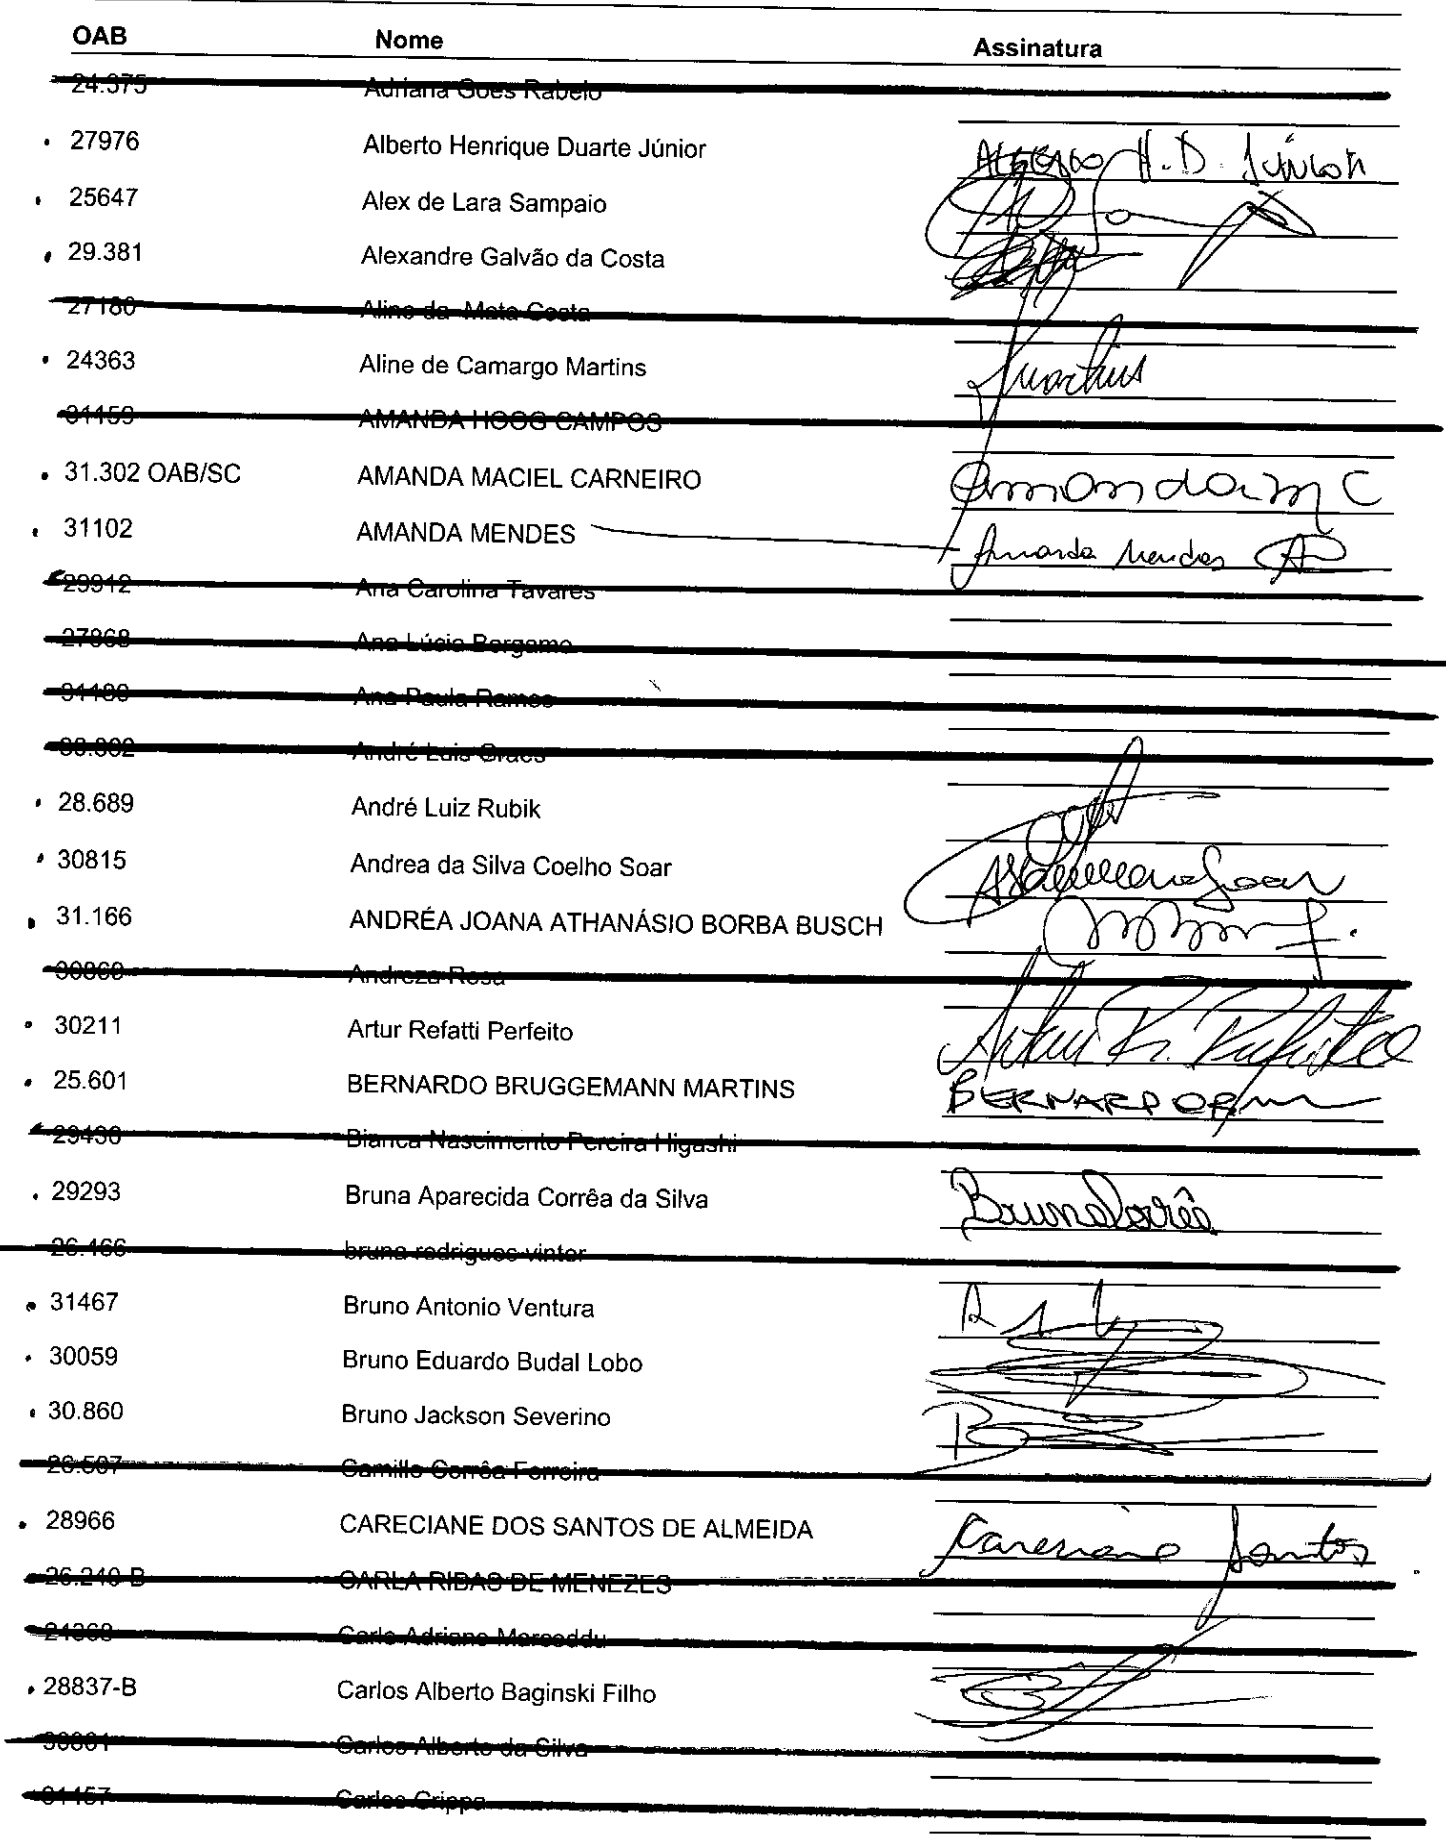 OAB Nome Assinatura
24.375 Adriana Goes Rabelo
27976 Alberto Henrique Duarte Júnior ALBERTO H. D. JÚNIOR
25647 Alex de Lara Sampaio
29.381 Alexandre Galvão da Costa
27180 Aline da Mata Costa
24363 Aline de Camargo Martins Martins
31159 AMANDA HOOG CAMPOS
31.302 OAB/SC AMANDA MACIEL CARNEIRO Amanda M C
31102 AMANDA MENDES Amanda Mendes
29912 Ana Carolina Tavares
27868 Ana Lúcia Bergamo
Ana Paula Ramos
André Luis
28.689 André Luiz Rubik
30815 Andrea da Silva Coelho Soar Soar
31.166 ANDRÉA JOANA ATHANÁSIO BORBA BUSCH
30868 Andreza Rosa
30211 Artur Refatti Perfeito Artur R. Perfeito
25.601 BERNARDO BRUGGEMANN MARTINS BERNARDO
29430 Bianca Nascimento Pereira Higashi
29293 Bruna Aparecida Corrêa da Silva Bruna Corrêa
26.466 bruna rodrigues vintor
31467 Bruno Antonio Ventura
30059 Bruno Eduardo Budal Lobo
30.860 Bruno Jackson Severino
26.507 Camillo Corrêa Ferreira
28966 CARECIANE DOS SANTOS DE ALMEIDA Careciane Santos
26.240-B CARLA RIBAS DE MENEZES
Carlo Adriano
28837-B Carlos Alberto Baginski Filho
Carlos Alberto da Silva
31457 Carlos Crippa